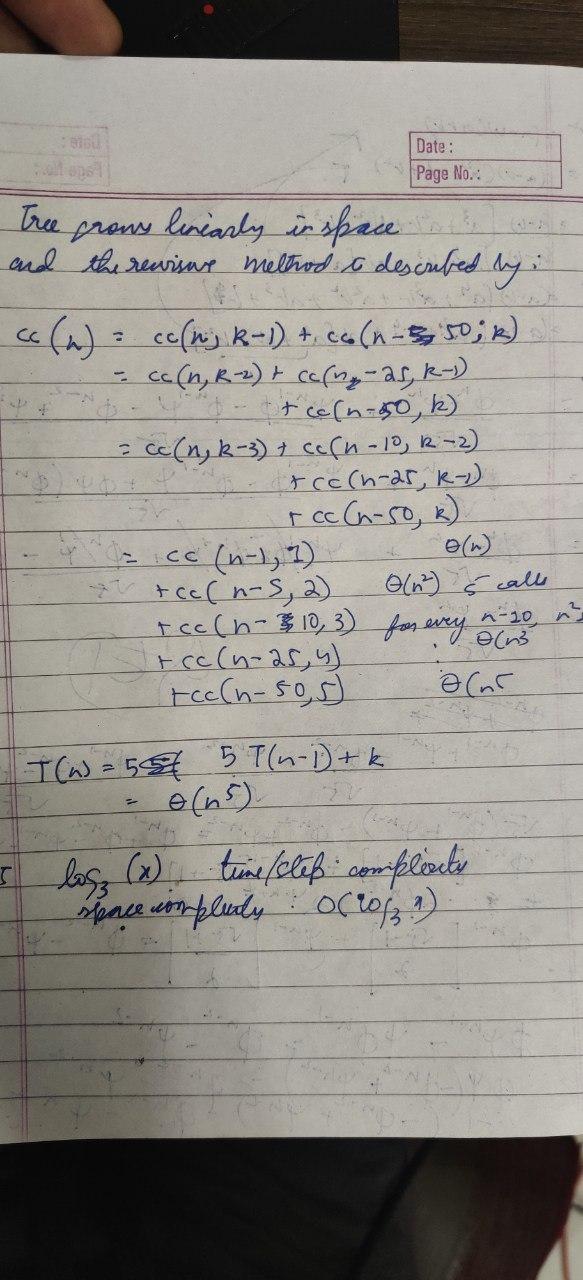 Date :
Page No. :
Tree grows linearly in space
and the recursive method is described by :
cc(n) = cc(n, k-1) + cc(n - 50, k)
= cc(n, k-2) + cc(n - 25, k-1)
+ cc(n-50, k)
= cc(n, k-3) + cc(n-10, k-2)
+ cc(n-25, k-1)
+ cc(n-50, k)
= cc (n-1, 1) θ(n)
+ cc( n-5, 2) θ(n²) 5 calls
+ cc(n-10, 3) for every n-10, n²
: θ(n³
+ cc(n-25, 4)
+ cc(n-50, 5) θ(n⁵
T(n) = 5 5 T(n-1) + k
= θ(n⁵)
5 log₃ (x) time/step complexity
space complexity : O(log₃ x)